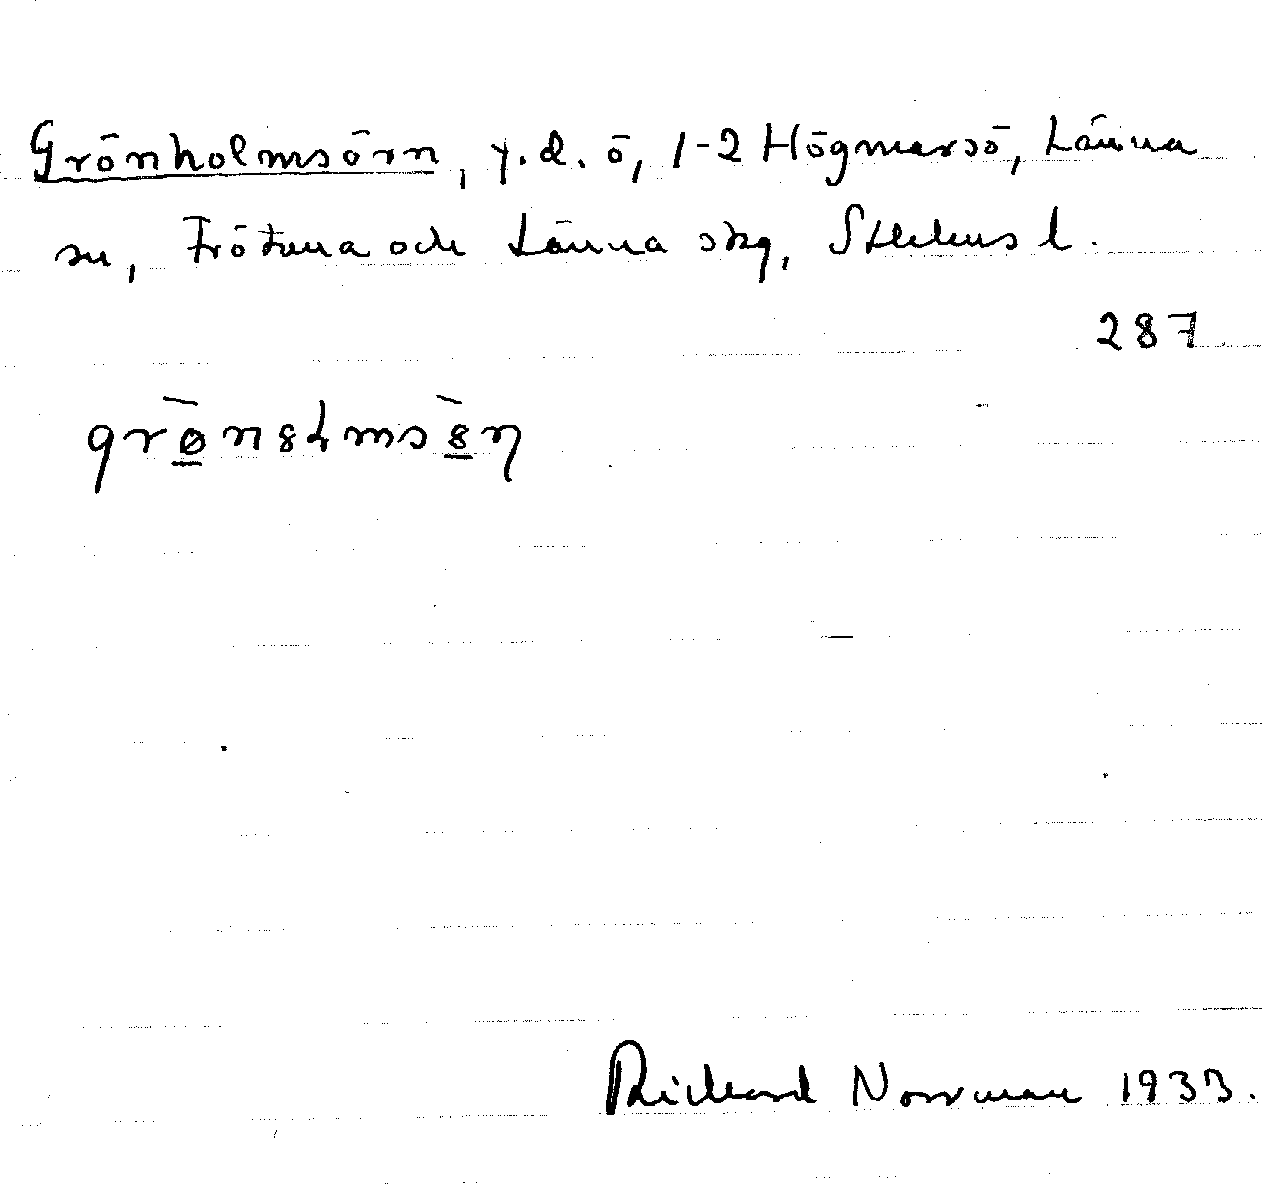 Grönholmsörn, y.d. ö, 1-2 Högmarsö, Länna
sn, Frötuna och Länna skg, Sthlms l.
287
Rickard Norrman 1933.